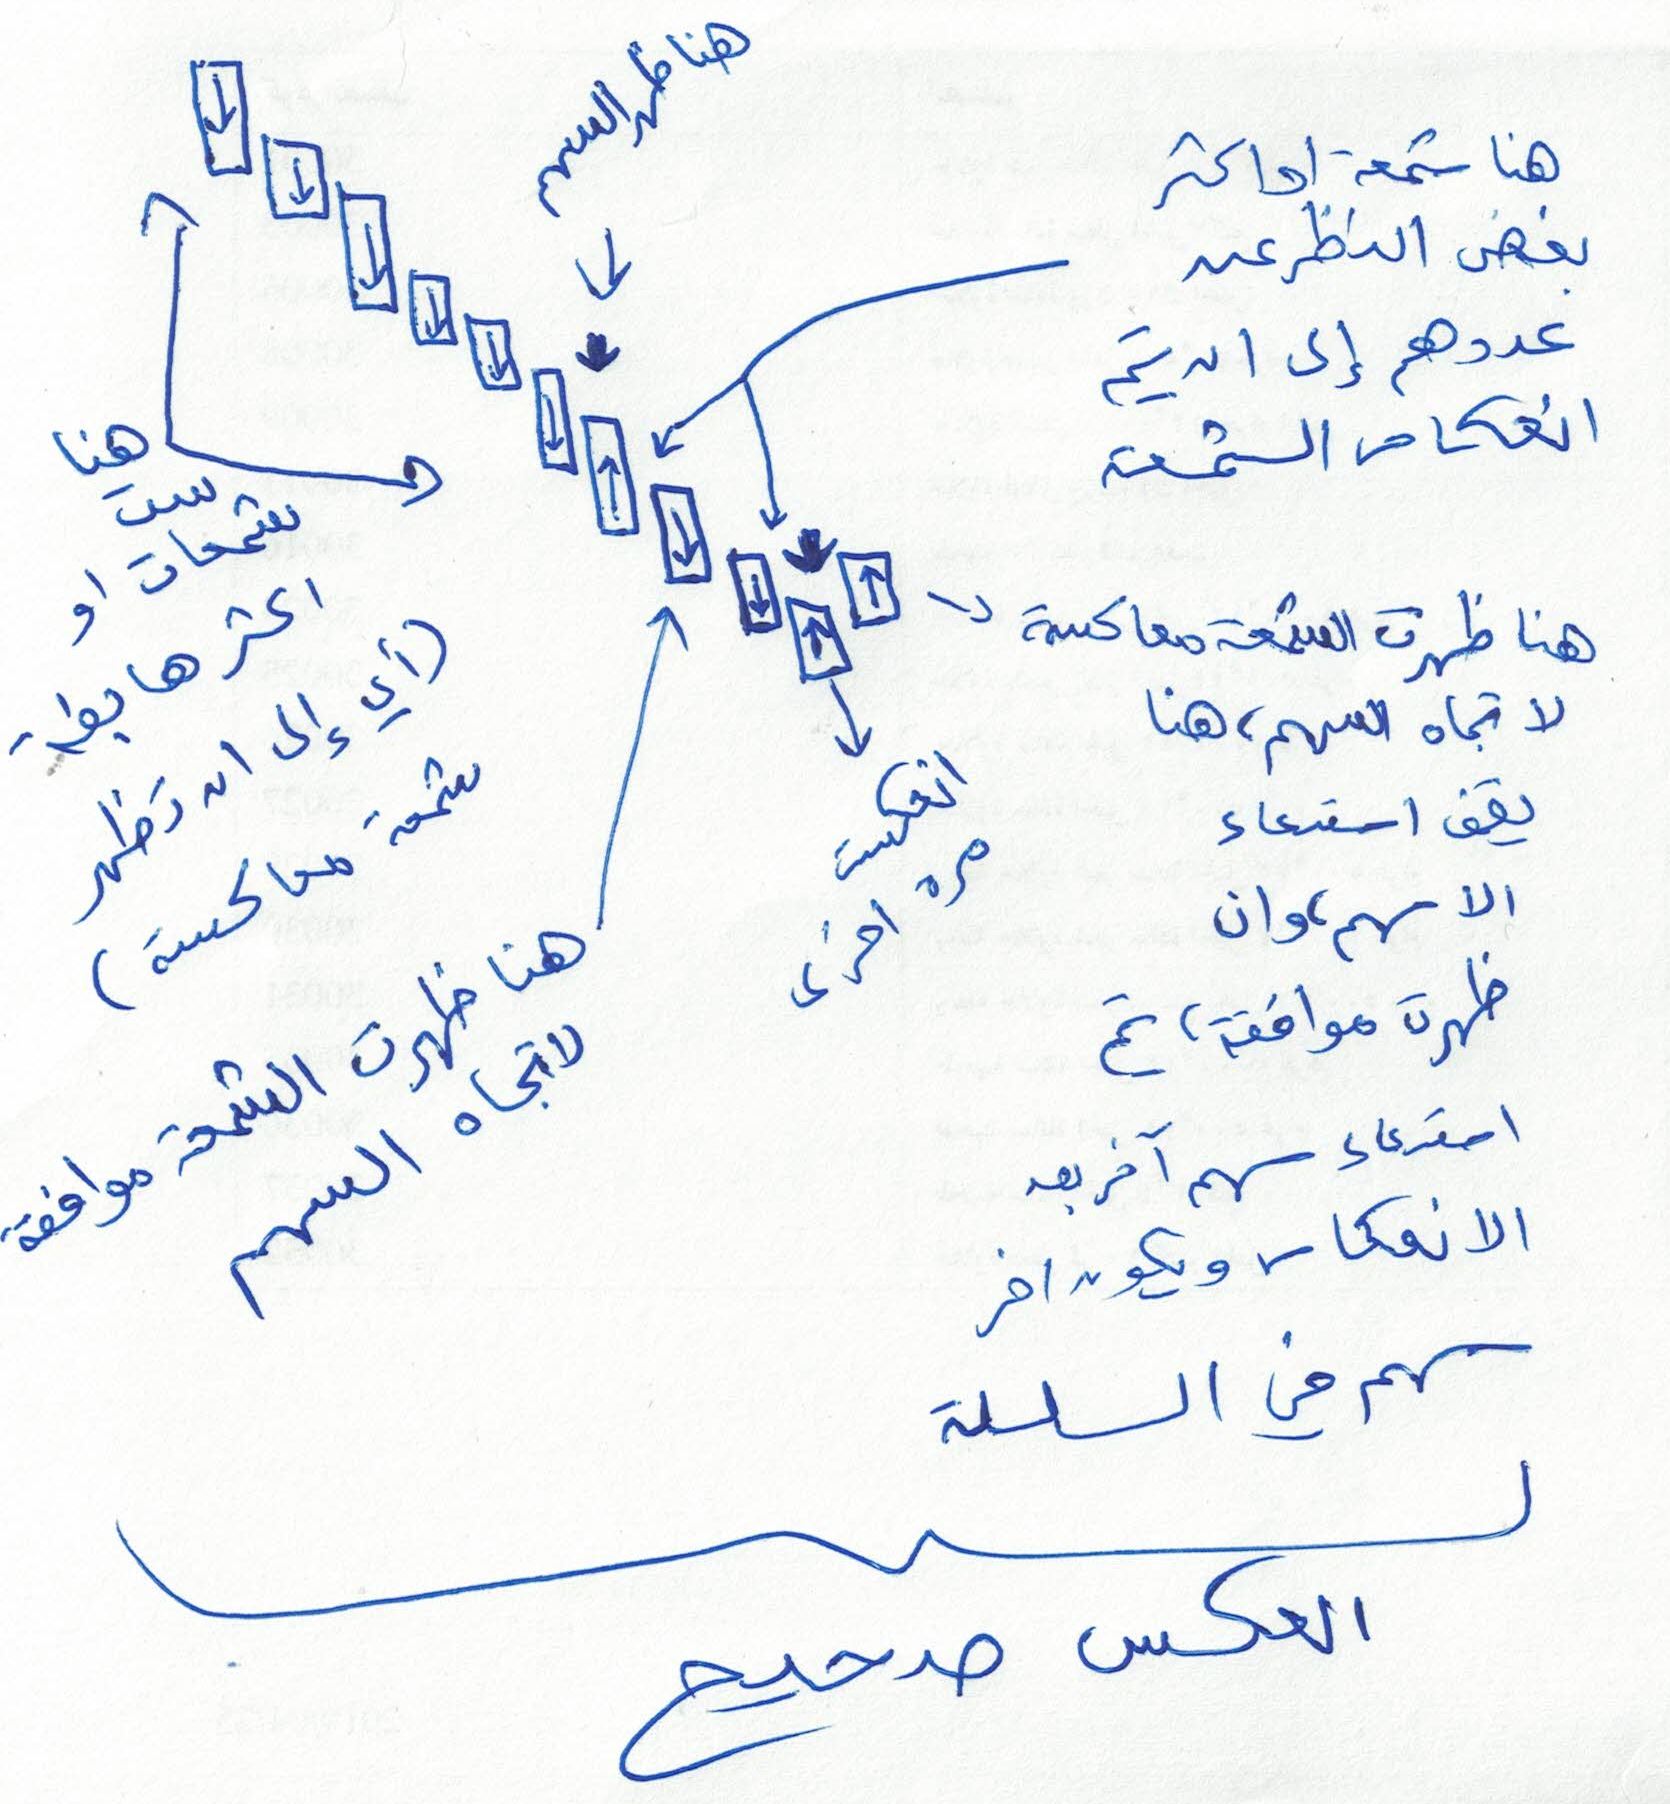 هنا ظهر السهم
هنا شمعة او اكثر
بغض النظر عن
عددهم إلى ان يتم
انعكاس الشمعة
هنا
ست
شمعات او
اكثر هابطة
(أي إلى ان تظهر
شمعة معاكسة)
هنا ظهرت الشمعة معاكسة
لاتجاه السهم، هنا
يقف استدعاء
الاسهم، وان
ظهرت موافقة، يتم
استدعاء سهم آخر بعد
الانعكاس ويكون اخر
سهم في السلسلة
انعكست
مرة اخرى
هنا ظهرت الشمعة موافقة
لاتجاه السهم
العكس صحيح